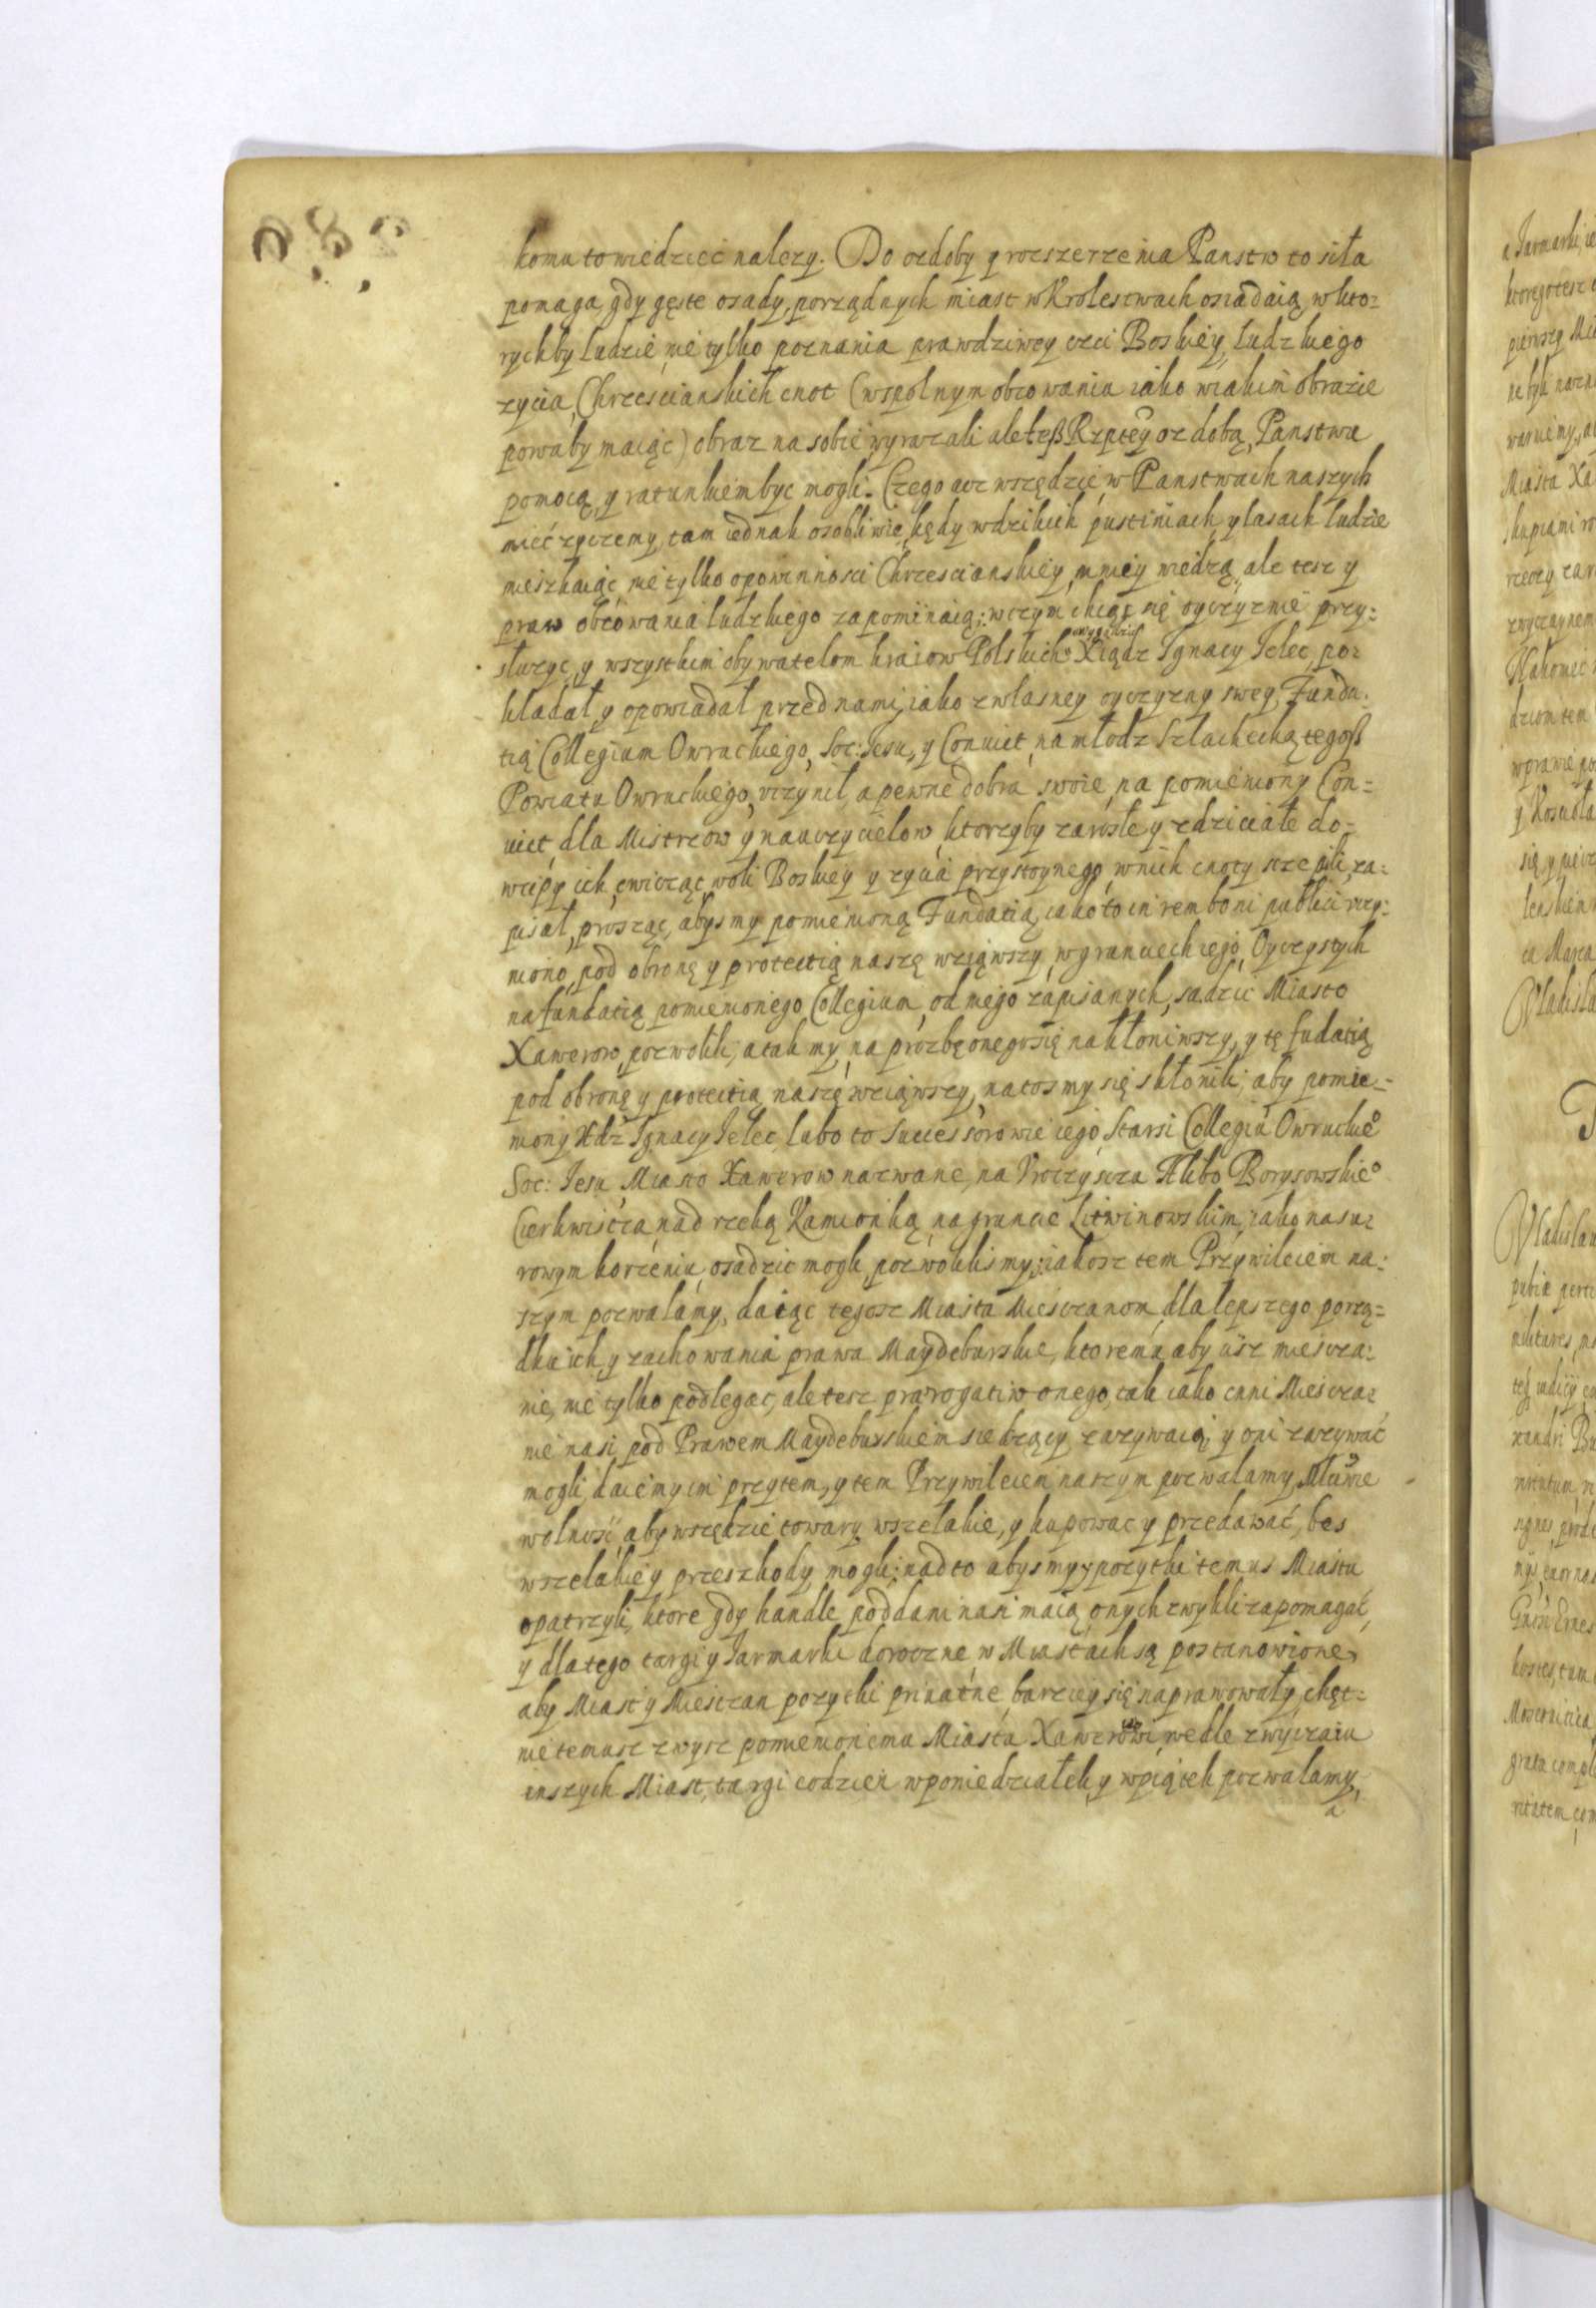 komu to wiedziec nalezy. Do ozdoby y rozszerzenia Panstw to siła
pomaga, gdy gęste osady, porządnych miast w Krolestwach osiadaią, w kto=
rychby ludzie, nie tylko poznania prawdziwey czci Boskiey, ludzkiego
zycia, Chrzescianskich cnot (wspolnym obcowaniu iako w iakim obrazie
powaby maiąc) obraz na sobie wyrazali ale teß Rzptey ozdobą, Panstwu
pomocą, y ratunkiem byc mogli. Czego acz wszędzie, w Panstwach naszych
mieć zyczemy, tam iednak osobliwie, kędy w dzikich pustiniach, y lasach ludzie
mieszkaiąc, nie tylko o powinnosci Chrzescianskiey, mniey wiedzą, ale tesz y
praw obcowania ludzkiego zapominaią; w czym chcąc się oyczyznie przy=
słuzyc, y wszystkim obywatelom kraiow Polskich Xiądz Ignacy Ielec, po=
kładał, y opowiadał przed nami, iako z własney oyczyzny swey, Funda=
tią Collegium Owruckiego, Soc: Iesu, y Conuict, na młodz Szlachecką tegoß
Powiatu Owruckiego, vczynił, a pewne dobra swoie, na pomieniony Con=
uict, dla Mistrzow y nauczycielow, ktorzyby zarosłe y zdziciałe do=
wcipy ich, cwicząc, woli Boskiey y zycia przystoynego, w nich cnoty szczepili, za=
pisał, prosząc, abysmy pomienioną Fundatią, iako to in rem boni publici vczy=
nioną, pod obronę y protectią naszę wziąwszy, w granicech iego, Oyczystych
na fundatią pomienionego Collegium, od niego zapisanych, sadzic Miasto
Xawerow, pozwolili; a tak my, na prozbę onego się nakłoniwszy, y tę fudatią
pod obronę y protectią naszę wziąwszy, na tosmy się skłonili; aby pomie=
niony Xdz Ignacy Ielec, lubo to Successorowie iego, Starsi Collegiu Owruckie°
Soc: Iesu, Miasto Xawerow nazwane, na Vroczyscza Borysowskie°
Cierkwiscza, nad rzeką Kamionką, na gruncie Litwinowskim, iako na su=
rowym korzeniu, osadzic mogli, pozwolilismy; iakosz tem Przywileiem na=
szym pozwalamy, daiąc tegosz Miasta Miesczanom, dla lepszego porzą=
dku ich, y zachowania prawa Maydeburskie, ktoremu, aby iisz miescza=
nie, nie tylko podlegac, ale tesz prærogatiw onego, tak iako inni Miescza=
nie nasi pod Prawem Maydeburskiem siedzący, zazywaią, y oni zazywać
mogli daiemy im przytem, y tem Przywileiem naszym pozwalamy,
wolnosć, aby wszędzie towary wszelakie, y kupowac y przedawać, bes
wszelakiey przeszkody, mogli; nad to abysmy y pozytki temus Miastu
opatrzyli, ktore gdy handle poddani nasi maią, onych zwykli zapomagać,
y dla tego targi y Iarmarki doroczne, w Miastach są postanowione,
aby Miast y Miesczan pozytki priuatne, barziey się naprawowały, chęt=
nie temusz zwysz pomienionemu Miastu Xawerowi, wedle zwyczaiu
inszych Miast, targi co dzien w poniedziałek, y w piątek pozwalamy,
a